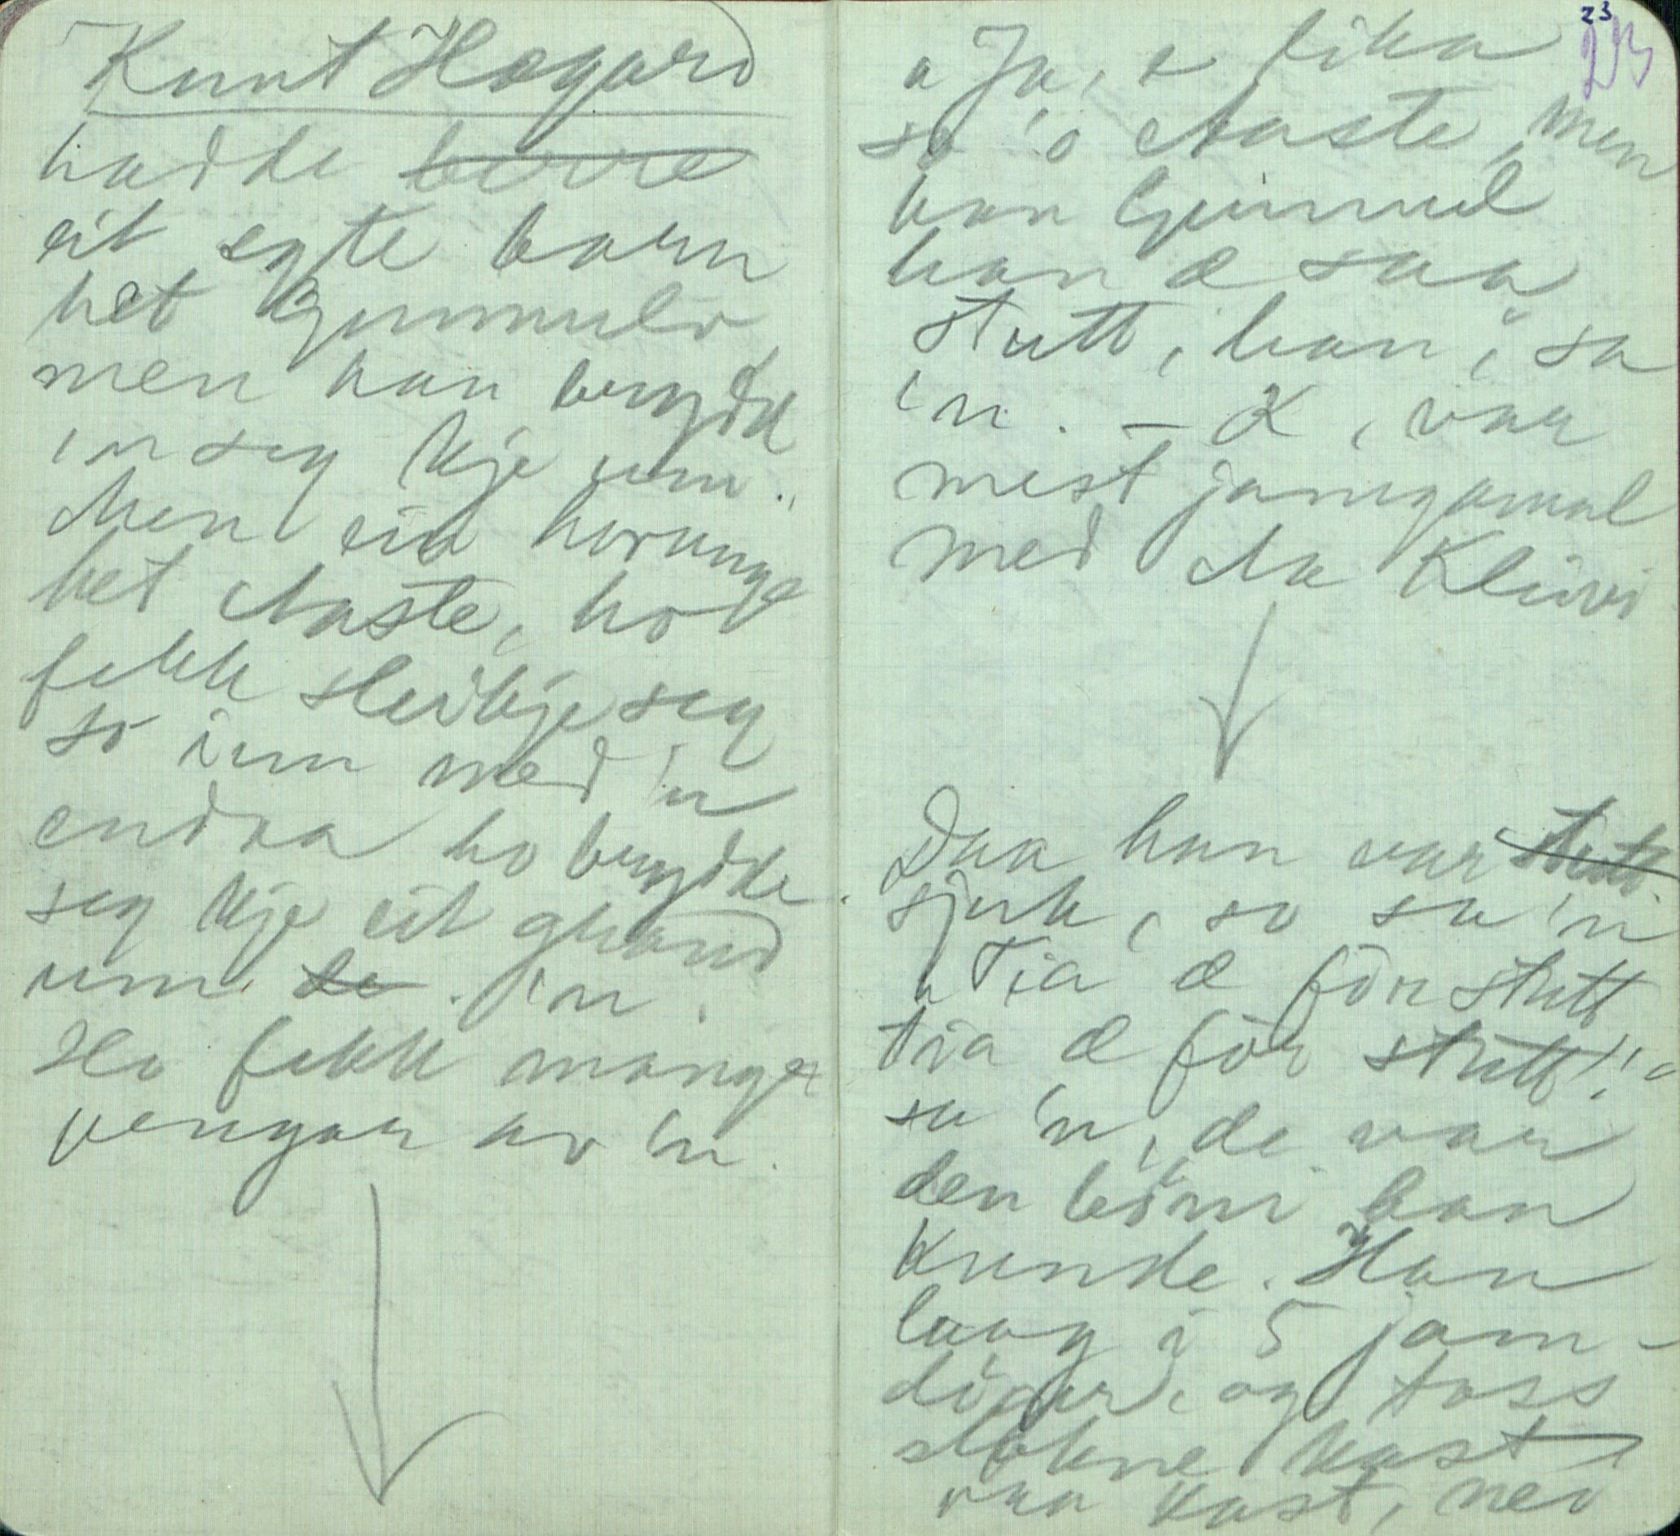 Knut Hogard
hadde berre
eit egte barn
het Gunnulv
men han brydd
in seg kje um.
Men eia horunge
het Aaste, ho
fekk sleikje seg
so inn med 'n
endaa ho brydde
seg kje eit grand
um de. 'n.
Ho fekk mange
pengar av 'n.
23
23
"Ja, e lika
so 'o Aaste, men
han Gunnul
han æ saa
stutt, han, sa
'n. - K, var
mest jamgamal
med Aa Kleivi
Daa han var stutt
sjuk, so sa 'n
"Tia æ för stutt
tia æ för stutt!"
sa 'n, de var
den böni han
kunde. Han
laag i 5 jam-
döger, og
kast
paa kast, ned